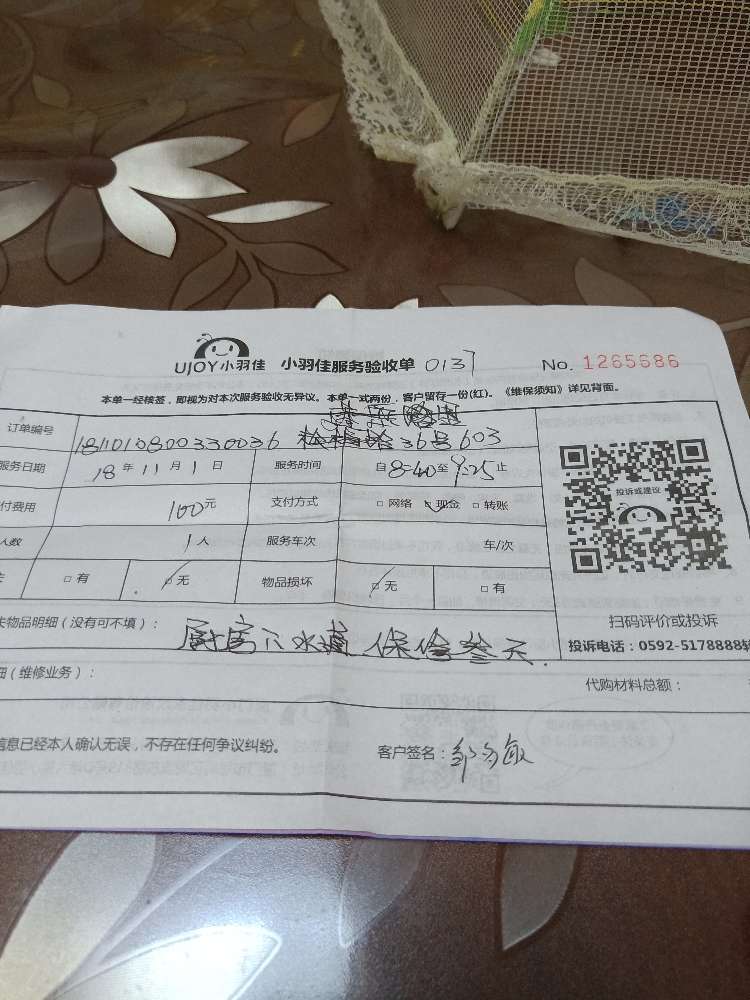 UJOY小羽佳 小羽佳服务验收单 0137 No. 1265686
本单一经核签，即视为对本次服务验收无异议。本单一式两份，客户留存一份(红)。《维保须知》详见背面。
订单编号 1811010800330036 36号603
服务日期 18年11月1日 服务时间 自8:40至9:25止
付费用 100元 支付方式 □网络 □现金 □转账
人数 1人 服务车次 车/次
□有 □无 物品损坏 □无 □有
投诉或建议
扫码评价或投诉
投诉电话：0592-5178888转
失物品明细（没有可不填）： 厨房下水道 保修叁天.
细（维修业务）： 代购材料总额：
信息已经本人确认无误，不存在任何争议纠纷。 客户签名：